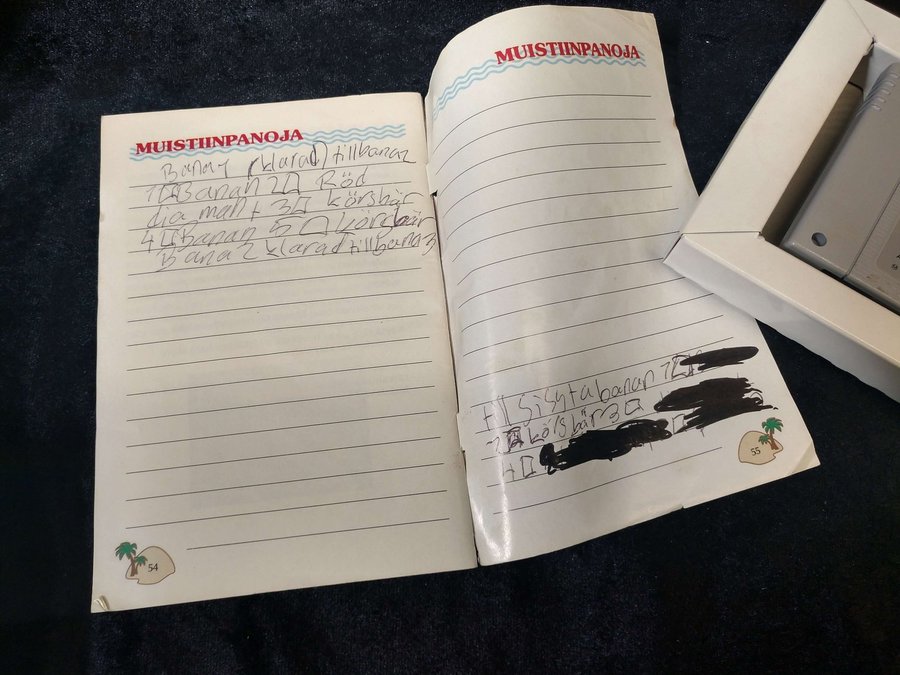 MUISTIINPANOJA
Bana 1 (klarad) tillbana2
1□Banan 2□ Röd
diamant 3□ körsbär
4□Banan 5□ körsbär
Bana 2 klarad tillbana3
54
MUISTIINPANOJA
till Sisytabanan 1□
2□ körsbär 3□
4□
55